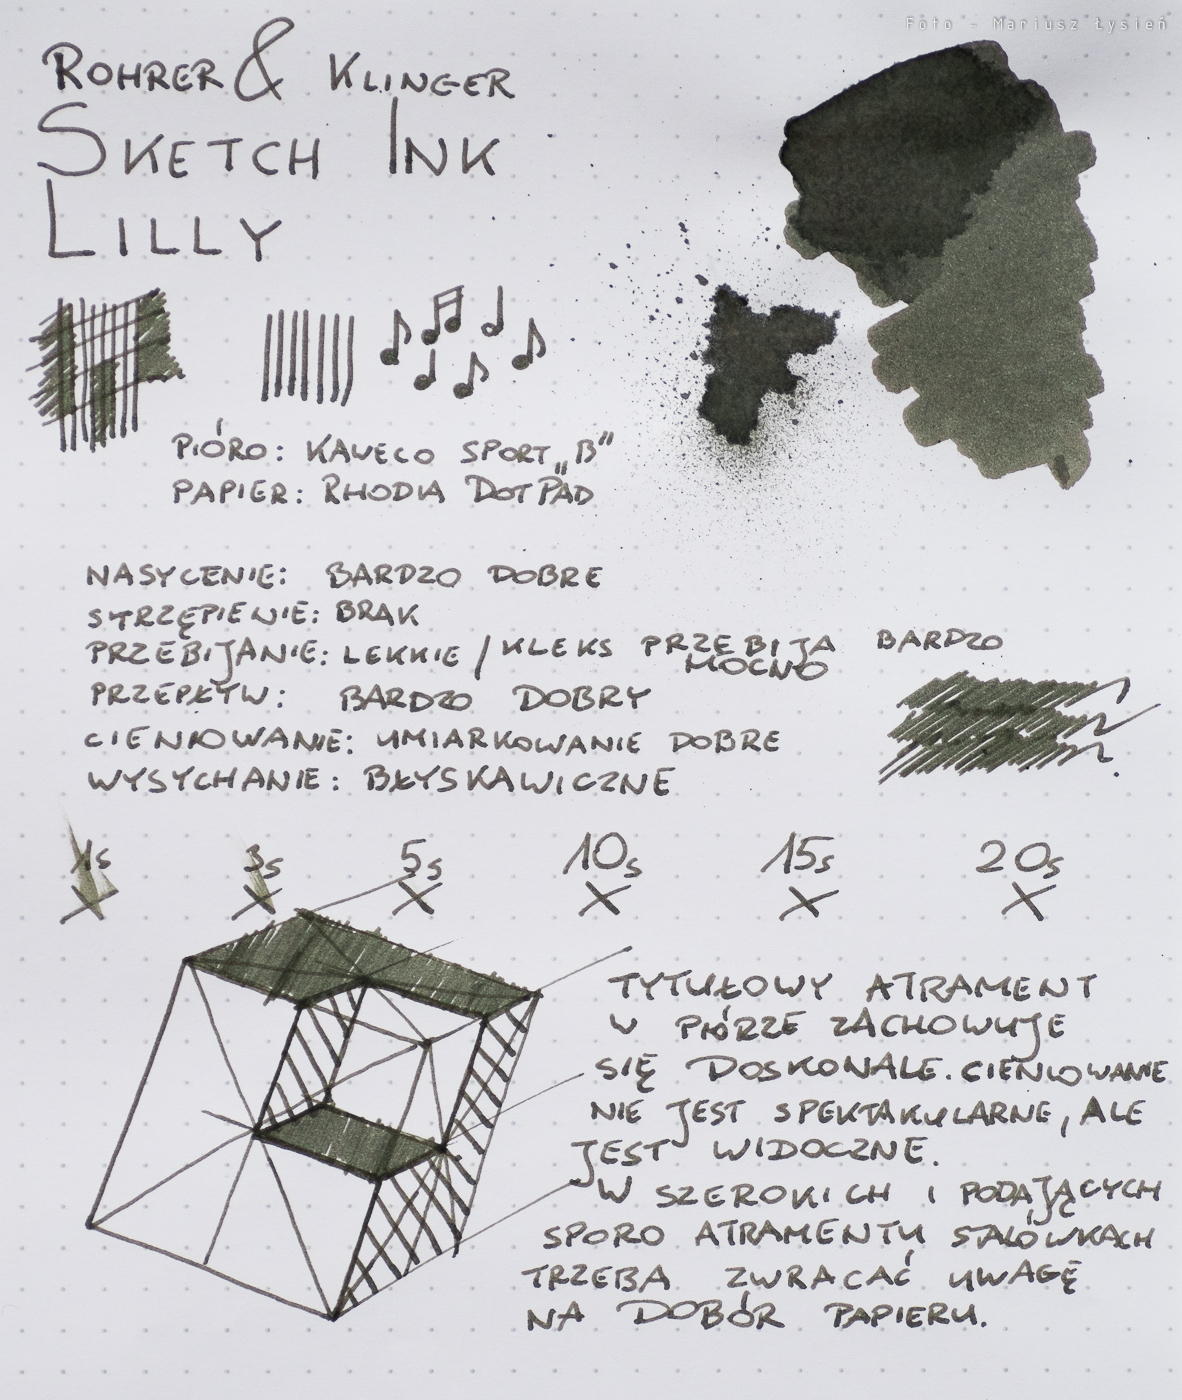 Foto - Mariusz Łysień
ROHRER & KLINGER
SKETCH INK
LILLY
PIÓRO: KAWECO SPORT „B”
PAPIER: RHODIA DOTPAD
NASYCENIE: BARDZO DOBRE
STRZĘPIENIE: BRAK
PRZEBIJANIE: LEKKIE / KLEKS PRZEBIJA BARDZO
MOCNO
PRZEPŁYW: BARDZO DOBRY
CIENIOWANIE: UMIARKOWANIE DOBRE
WYSYCHANIE: BŁYSKAWICZNE
1s 3s 5s 10s 15s 20s
TYTUŁOWY ATRAMENT
W PIÓRZE ZACHOWUJE
SIĘ DOSKONALE. CIENIOWANIE
NIE JEST SPEKTAKULARNE, ALE
JEST WIDOCZNE.
W SZEROKICH I PODAJĄCYCH
SPORO ATRAMENTU STALÓWKACH
TRZEBA ZWRACAĆ UWAGĘ
NA DOBÓR PAPIERU.